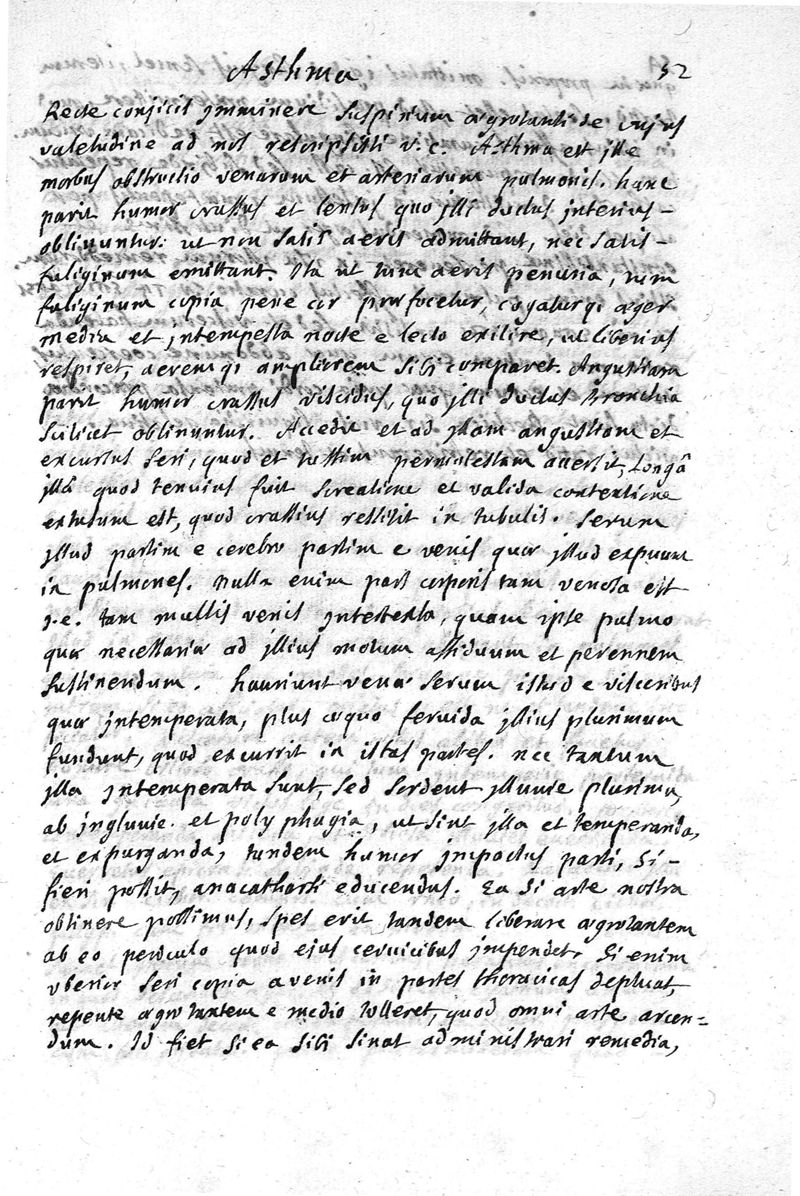 Asthma 52
Recte conjicis jmminere suspirium ægrotanti de cujus
valetudine ad nos rescripsisti v. c. Asthma est jlle
morbus obstructio venarum et arteriarum pulmonis. hanc
parit humor crassus et lentus quo jlli ductus jnterius-
oblinuntur: ut non satis aeris admittant, nec satis-
fuliginum emittant. Ita ut tum aeris penuria, tum
fuliginum copia pene cor præfocetur, cogaturqi æger
media et jntempesta nocte e lecto exilire, ut liberius
respiret, aeremqi ampliorem sibi comparet. Angustiam
parit humor crassus viscidus, quo jlli ductus bronchia
scilicet oblinuntur. Accedit et ad jstam angustiam et
excursus seri, quod et tussim permolestam accersit, Longâ
jllâ quod tenuius fuit screatione et valida contentione
extusum est, quod crassius restitit in tubulis. Serum
jllud partim e cerebro partim e venis quæ jllud expuunt
in pulmones. Nulla enim pars corporis tam venosa est
j.e. tam multis venis jntertexta, quam ipse pulmo
quæ necessariæ ad jllius motum assiduum et perennem
sustinendum. hauriunt venæ serum istud e visceribus
quæ jntemperata, plus æquo fervida jllius plurimum
fundunt, quod excurrit in istas partes. nec tantum
jlla jntemperata sunt, sed sordent jlluvie plurima,
ab jngluvie. et polyphagia, ut sint jlla et temperanda,
et expurganda, tandem humor jmpactus parti, si-
fieri possit, anacatharsi educendus. Ea si arte nostra
obtinere possimus, spes erit tandem liberare ægrotantem
ab eo periculo quod ejus cervicibus jmpendet. Si enim
vberior seri copia a venis in partes thoracicas depluat,
repente ægrotantem e medio tolleret, quod omni arte arcen=
dum. Id fiet si ea sibi sinat administrari remedia,